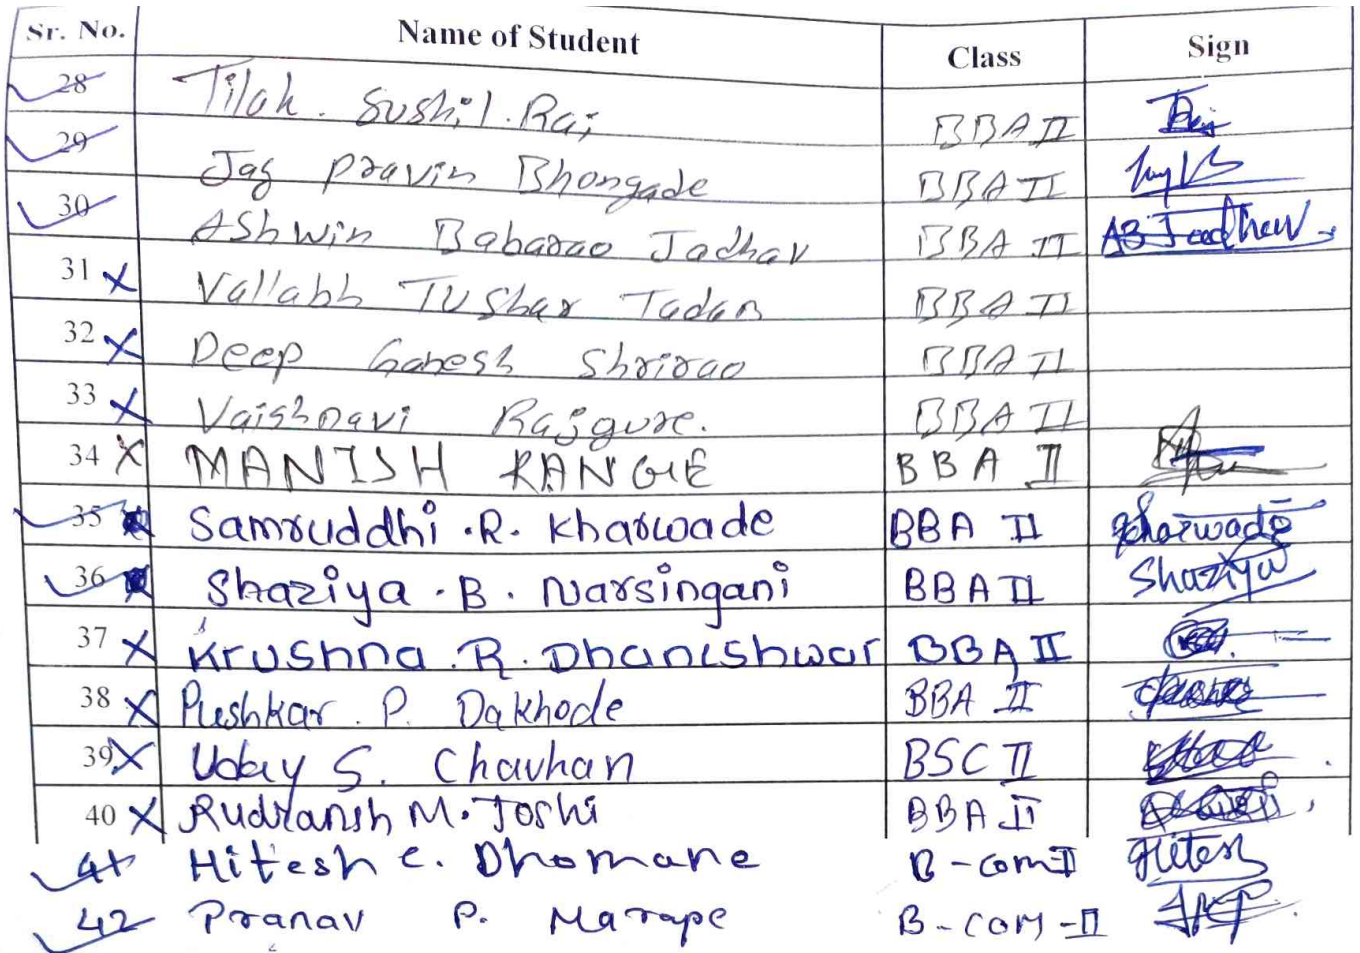 Sr. No. Name of Student Class Sign
28 Tilak. Sushil. Rai BBA II
29 Jay Pravin Bhongade BBA II
30 AShwin Babarao Jadhav BBA II AB Jadhav
31 X Vallabh TUShar Tadas BBA II
32 X Deep Ganesh Shrirao BBA II
33 X Vaishnavi Rajgure. BBA II
34 X MANISH RANGE BBA II
35 Samruddhi .R. Kharwade BBA II Kharwade
36 Shaziya . B . Narsingani BBA II Shaziya
37 X Krushna . R. Dhaneshwar BBA II
38 X Pushkar . P. Dakhode BBA II
39 X Uday S. Chavhan BSC II
40 X Rudransh M. Joshi BBA II
41 Hitesh C. Dhomane B-com II Hitesh
42 Pranav P. Marape B-com-II